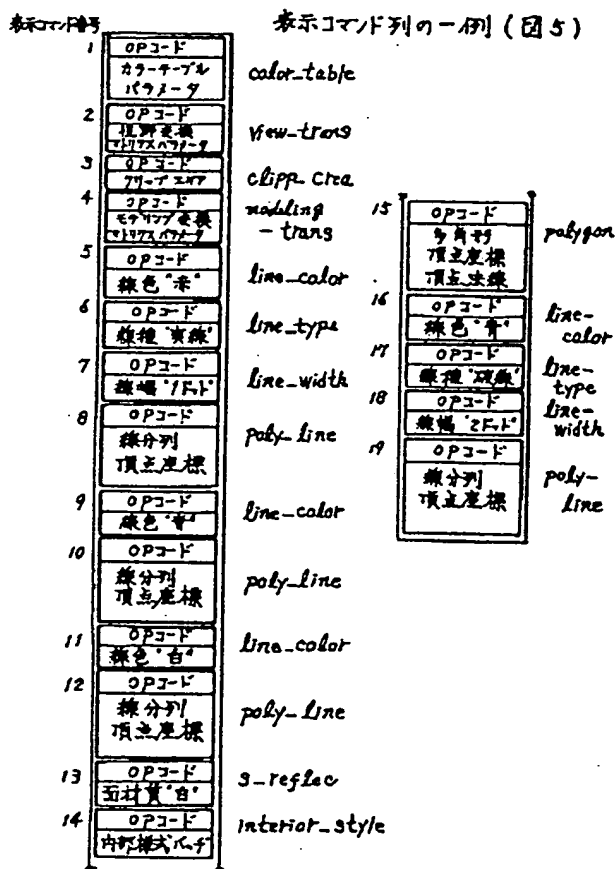 表示コマンド番号
表示コマンド列の一例(図5)
1
OPコード
カラーテーブル
パラメータ
color_table
2
OPコード
視野変換
マトリクスパラメータ
view_trans
3
OPコード
クリップエリア
clipp_area
4
OPコード
モデリング変換
マトリクスパラメータ
modeling
-trans
5
OPコード
線色"赤"
line_color
6
OPコード
線種"実線"
line_type
7
OPコード
線幅"1ドット"
line_width
8
OPコード
線分列
頂点座標
poly_line
9
OPコード
線色"青"
line_color
10
OPコード
線分列
頂点座標
poly_line
11
OPコード
線色"白"
line_color
12
OPコード
線分列
頂点座標
poly_line
13
OPコード
面材質"白"
s_reflec
14
OPコード
内部様式パッチ
interior_style
15
OPコード
多角形
頂点座標
頂点法線
polygon
16
OPコード
線色"青"
line-
color
17
OPコード
線種"破線"
line-
type
18
OPコード
線幅"2ドット"
line-
width
19
OPコード
線分列
頂点座標
poly-
line